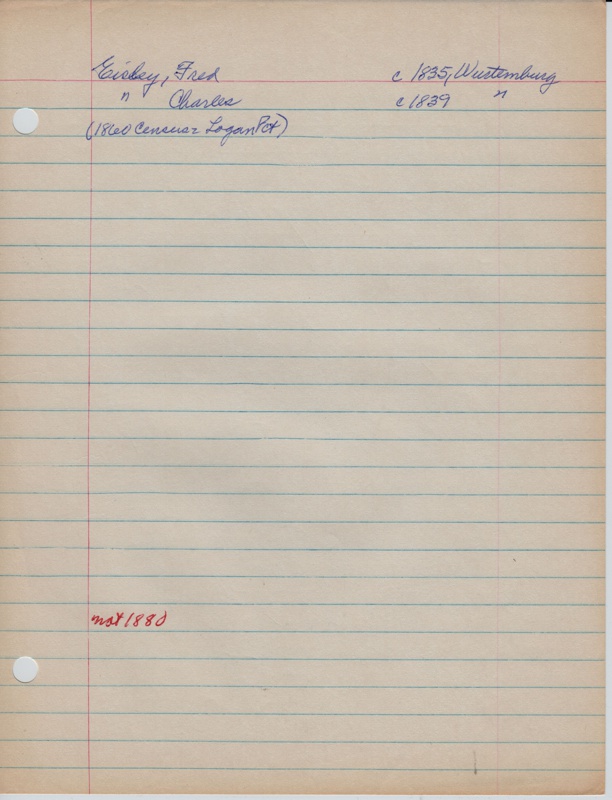 Eisley, Fred c 1835, Wurtemburg
" Charles c 1839 "
(1860 Census = Logan Pct)
not 1880